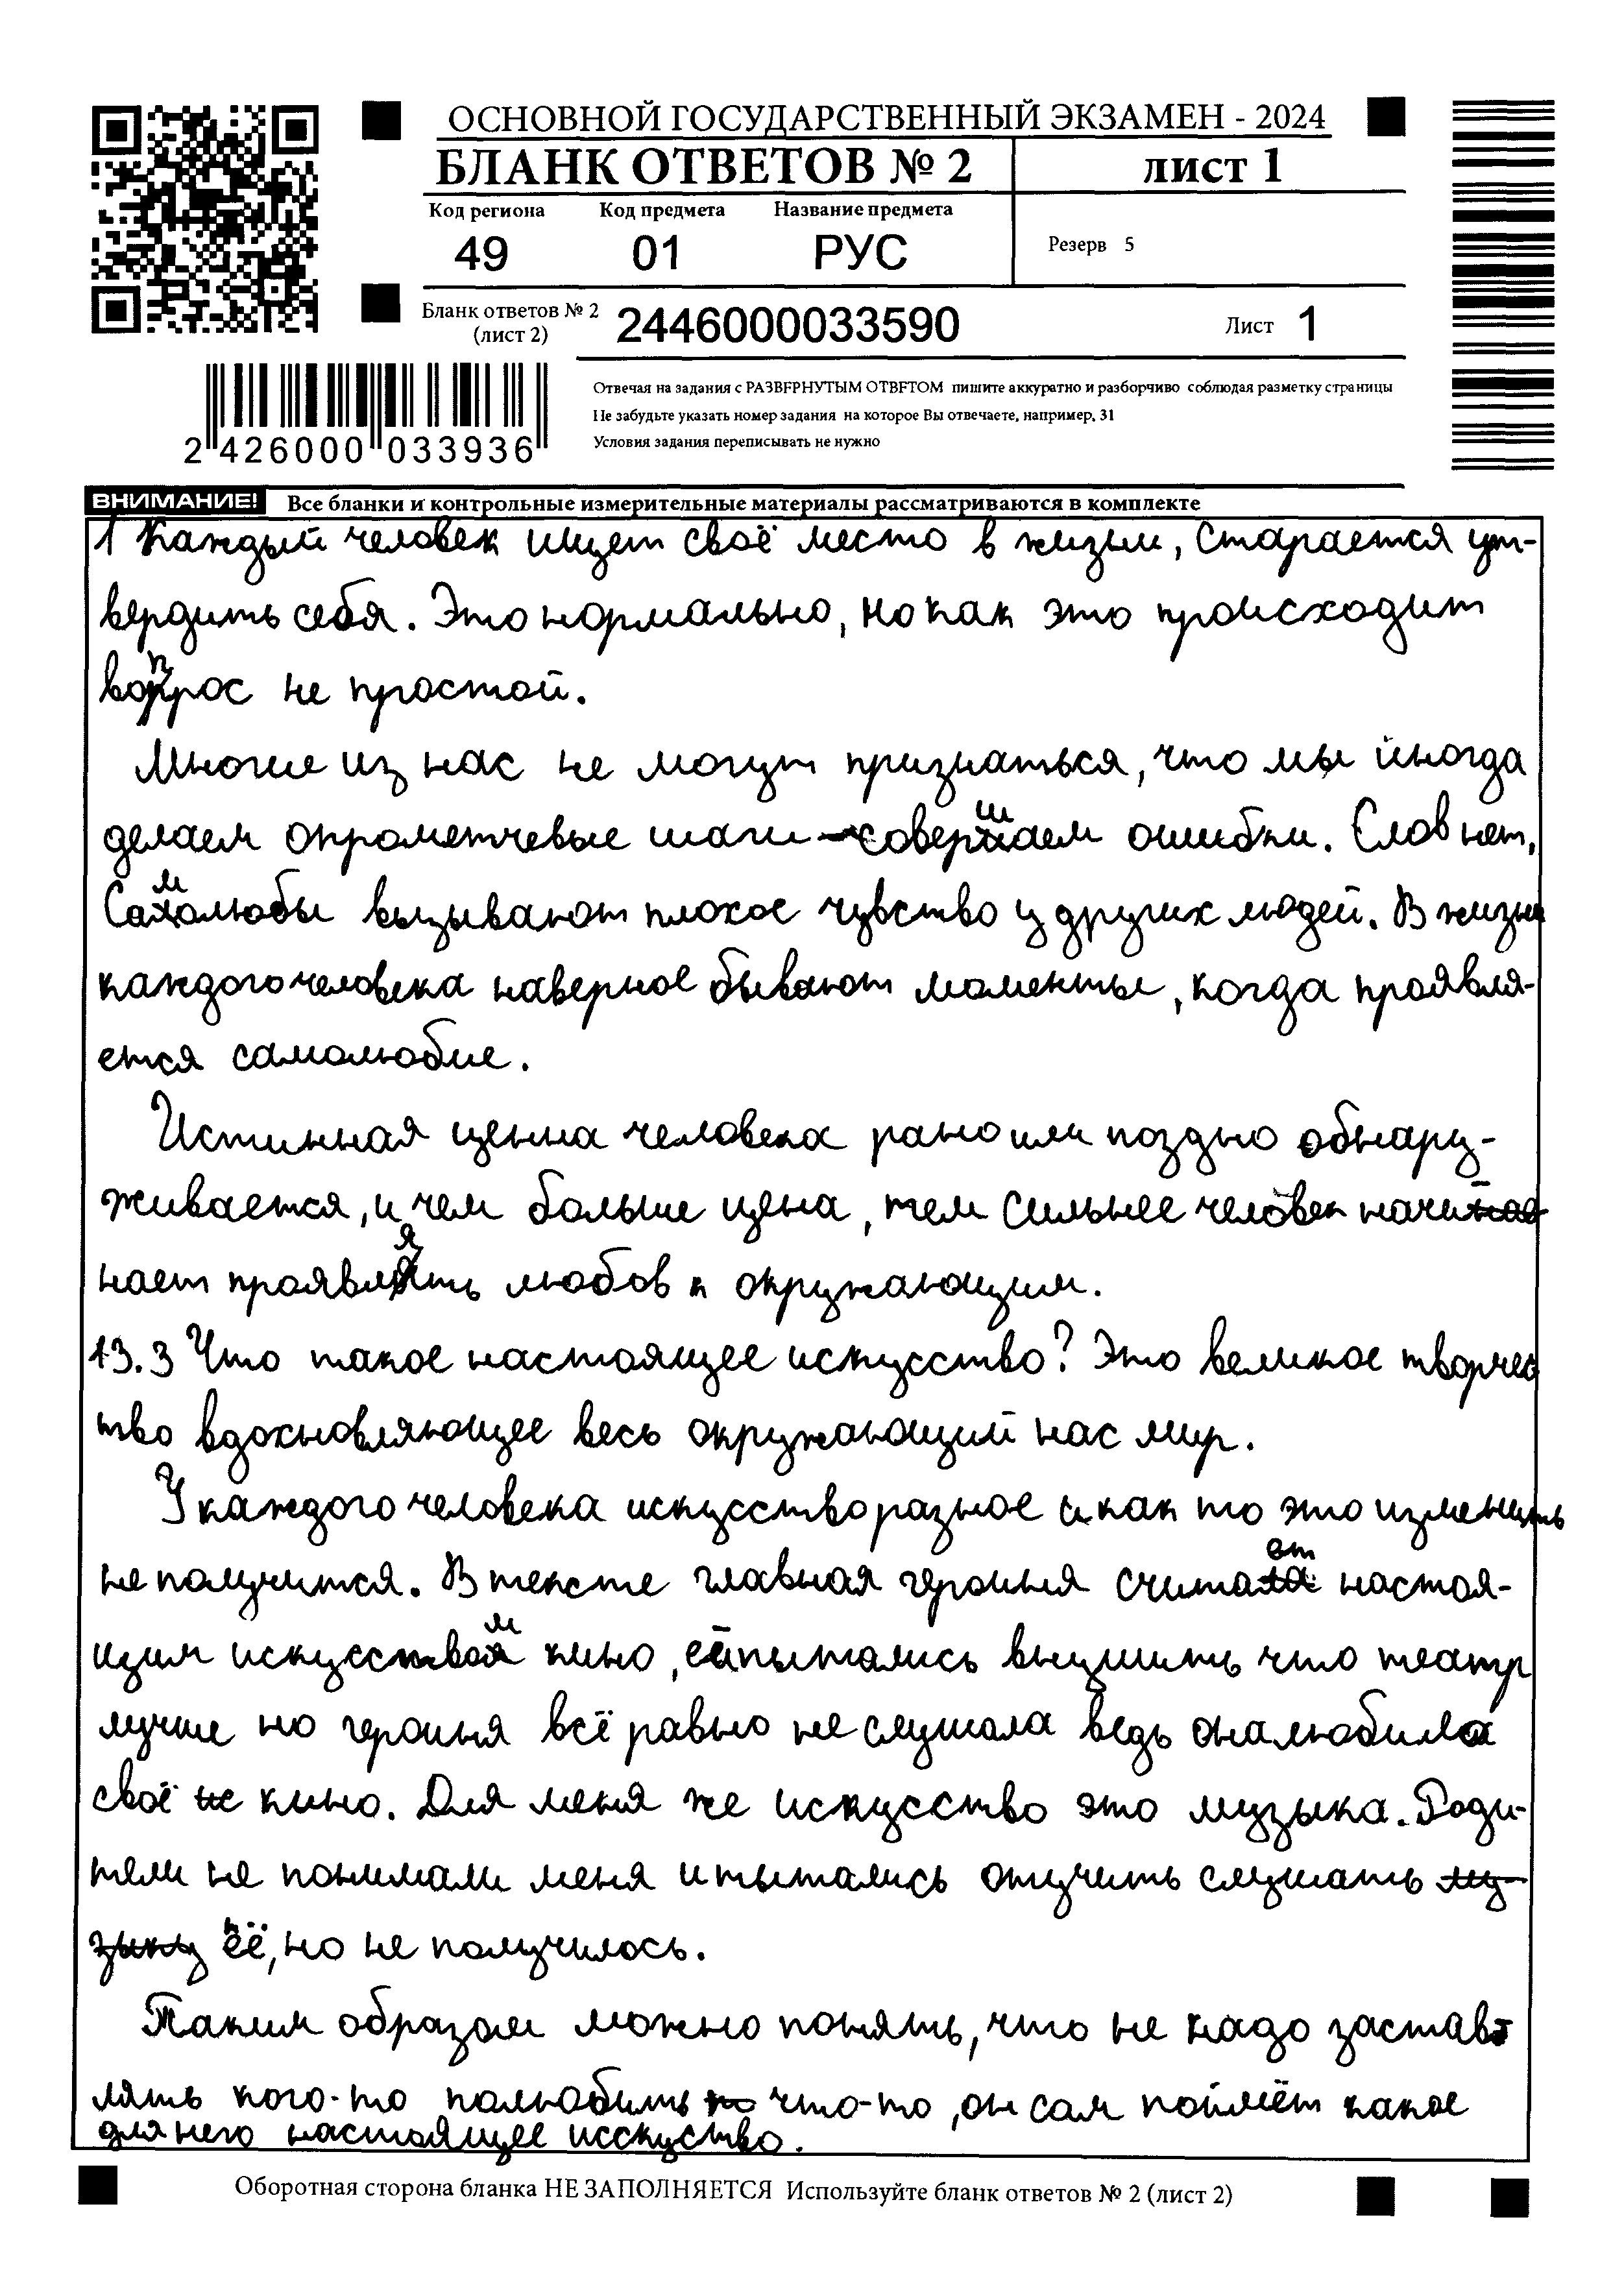 ОСНОВНОЙ ГОСУДАРСТВЕННЫЙ ЭКЗАМЕН - 2024
БЛАНК ОТВЕТОВ № 2
лист 1
Код региона Код предмета Название предмета
49 01 РУС
Резерв 5
Бланк ответов № 2
(лист 2)
2446000033590
Лист 1
Отвечая на задания с РАЗВЕРНУТЫМ ОТВЕТОМ пишите аккуратно и разборчиво соблюдая разметку страницы
Не забудьте указать номер задания на которое Вы отвечаете, например, 31
Условия задания переписывать не нужно
2 426000 033936
ВНИМАНИЕ! Все бланки и контрольные измерительные материалы рассматриваются в комплекте
1 Каждый человек ищет своё место в жизни, старается ут-
вердить себя. Это нормально, но как это происходит
вопрос не простой.
Многие из нас не могут признаться, что мы иногда
делаем опрометчевые шаги совершаем ошибки. Слов нет,
Самолюбы вызывают плохое чувство у других людей. В жизни
каждого человека наверное бывают моменты, когда проявля-
ется самолюбие.
Истинная ценна человека рано или поздно обнару-
живается, и чем больше цена, тем сильнее человек начи
нает проявлять любов к окружающим.
13.3 Что такое настоящее искусство? Это великое творчес
тво вдохновляющее весь окружающий нас мир.
У каждого человека искусство разное и как то это изменить
не получится. В тексте главная героиня считает настоя-
щим искусством кино, ей пытались внушить что театр
лучше но героиня всё равно не слушала ведь она любила
своё кино. Для меня же искусство это музыка. Роди-
тели не понимали меня и пытались отучить слушать
её, но не получилось.
Таким образом можно понять, что не надо застав
лять кого-то полюбить что-то, он сам поймёт какое
для него настоящее исскуство.
Оборотная сторона бланка НЕ ЗАПОЛНЯЕТСЯ Используйте бланк ответов № 2 (лист 2)